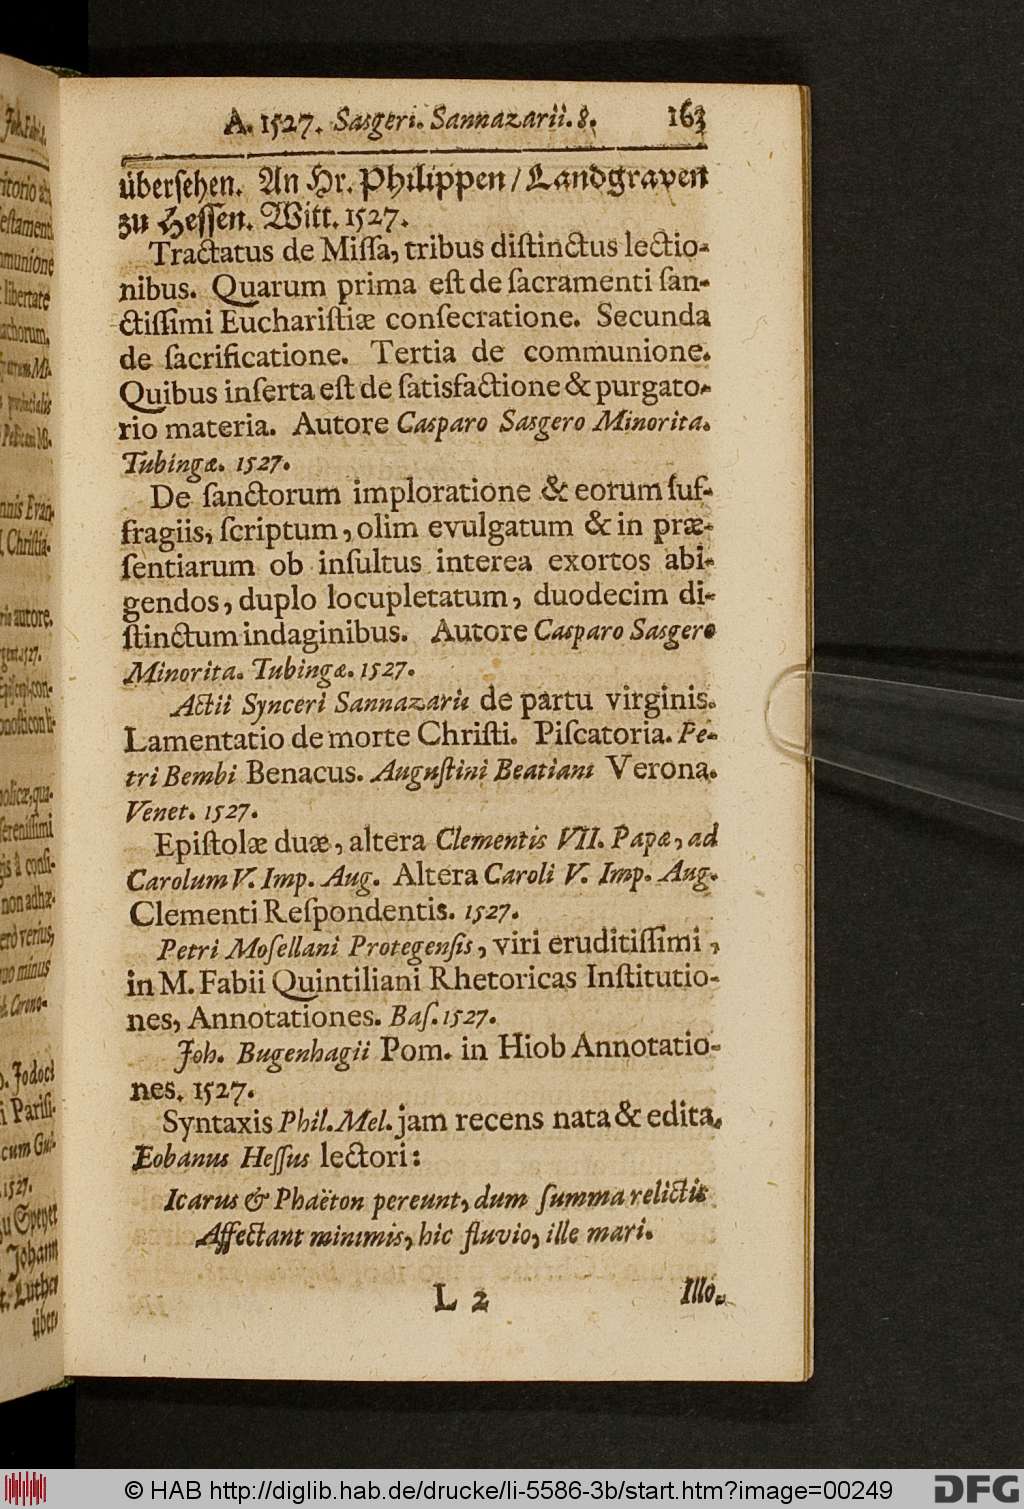 A. 1527. Sasgeri. Sannazarii. 8. 163
überſehen. An Hr. Philippen / Landgraven
zu Heſſen. Witt. 1527.
Tractatus de Miſſa, tribus diſtinctus lectio-
nibus. Quarum prima eſt de ſacramenti ſan-
ctiſſimi Euchariſtiæ conſecratione. Secunda
de ſacrificatione. Tertia de communione.
Quibus inſerta eſt de ſatisfactione & purgato-
rio materia. Autore Caſparo Sasgero Minorita.
Tubingæ. 1527.
De ſanctorum imploratione & eorum ſuf-
fragiis, ſcriptum, olim evulgatum & in præ-
ſentiarum ob inſultus interea exortos abi-
gendos, duplo locupletatum, duodecim di-
ſtinctum indaginibus. Autore Caſparo Sasgero
Minorita. Tubingæ. 1527.
Actii Synceri Sannazarii de partu virginis.
Lamentatio de morte Chriſti. Piſcatoria. Pe-
tri Bembi Benacus. Auguſtini Beatiani Verona.
Venet. 1527.
Epiſtolæ duæ, altera Clementis VII. Papæ, ad
Carolum V. Imp. Aug. Altera Caroli V. Imp. Aug.
Clementi Reſpondentis. 1527.
Petri Moſellani Protegenſis, viri eruditiſſimi,
in M. Fabii Quintiliani Rhetoricas Inſtitutio-
nes, Annotationes. Baſ. 1527.
Joh. Bugenhagii Pom. in Hiob Annotatio-
nes. 1527.
Syntaxis Phil. Mel. jam recens nata & edita.
Eobanus Heſſus lectori:
Icarus & Phaëton pereunt, dum ſumma relictis
Affectant minimis, hic fluvio, ille mari.
L 2 Illo,
© HAB http://diglib.hab.de/drucke/li-5586-3b/start.htm?image=00249 DFG